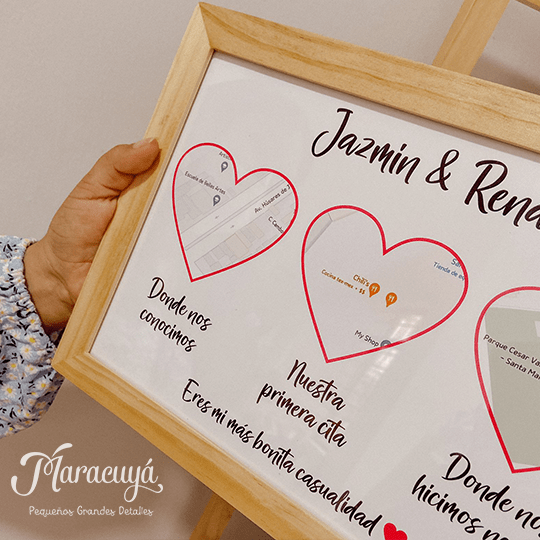 Jazmin & Rena
Escuela de Bellas Artes
Av. Húsares de J
Donde nos
conocimos
Chili's
Cocina tex-mex - $$
Tienda de
My Shop
Nuestra
primera cita
Parque Cesar Va
- Santa Ma
Donde nos
hicimos
Eres mi más bonita casualidad
Maracuyá
Pequeños Grandes Detalles